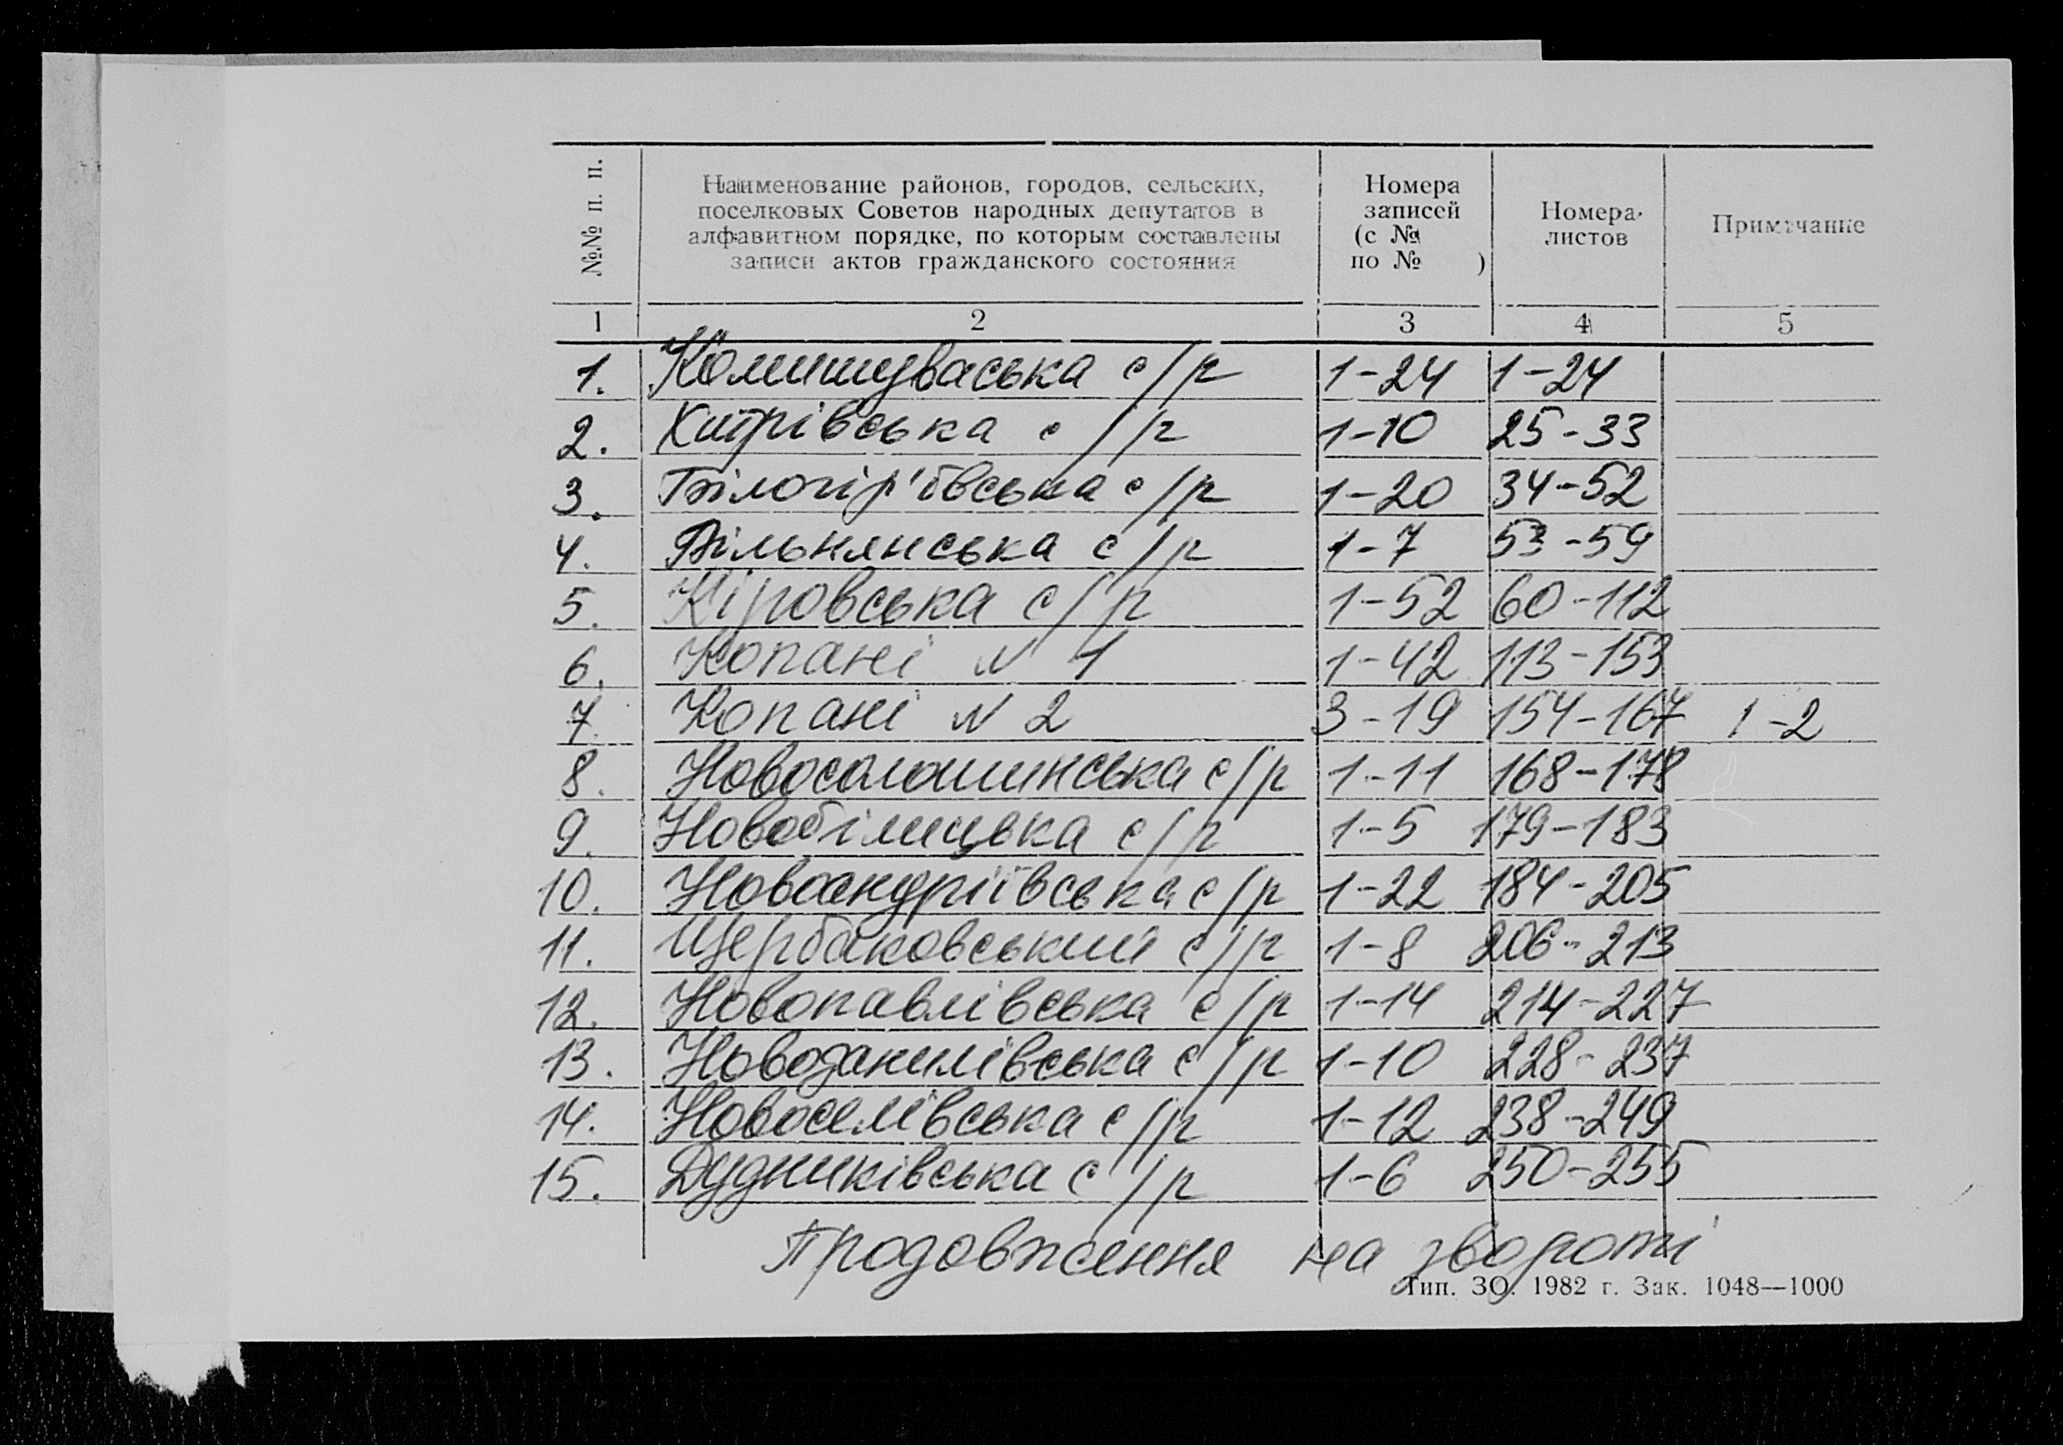 №№ п. п.
Наименование районов, городов, сельских,
поселковых Советов народных депутатов в
алфавитном порядке, по которым составлены
записи актов гражданского состояния
Номера
записей
(с №
по № )
Номера
листов
Примечание
1 2 3 4 5
1. Комишуваська с/р 1-24 1-24
2. Хитрівська с/р 1-10 25-33
3. Білогір'ївська с/р 1-20 34-52
4. Вільнянська с/р 1-7 53-59
5. Кіровська с/р 1-52 60-112
6. Копані N 1 1-42 113-153
7. Копані N 2 3-19 154-167 1-2
8. Новосолошинська с/р 1-11 168-178
9. Новобілицька с/р 1-5 179-183
10. Новоандріївська с/р 1-22 184-205
11. Щербаковський с/р 1-8 206-213
12. Новопавлівська с/р 1-14 214-227
13. Новоданилівська с/р 1-10 228-237
14. Новоселівська с/р 1-12 238-249
15. Дудниківська с/р 1-6 250-255
Продовження на звороті
Тип. ЗО. 1982 г. Зак. 1048—1000